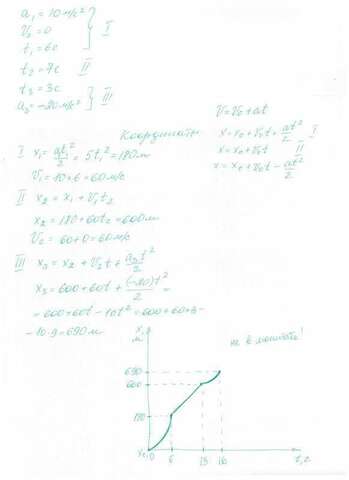 a₁ = 10 м/с²
V₀ = 0
t₁ = 6с
I
t₂ = 7с II
t₃ = 3с
a₃ = -20 м/с²
III
V = V₀ + at
Координати
x = x₀ + V₀t + at²/2 I
x = x₀ + V₀t II
x = x₀ + V₀t - at²/2
I x₁ = at₁²/2 = 5t₁² = 180м
V₁ = 10 • 6 = 60 м/с
II x₂ = x₁ + V₁t₂
x₂ = 180 + 60t₂ = 600м
V₂ = 60 + 0 = 60 м/с
III x₃ = x₂ + V₂t + a₃t²/2
x₃ = 600 + 60t + (-20)t²/2 =
= 600 + 60t - 10t² = 600 + 60 • 3 -
- 10 • 9 = 690 м
x,
м
690
600
180
0
6
13
16
t, с
не в масштабі!